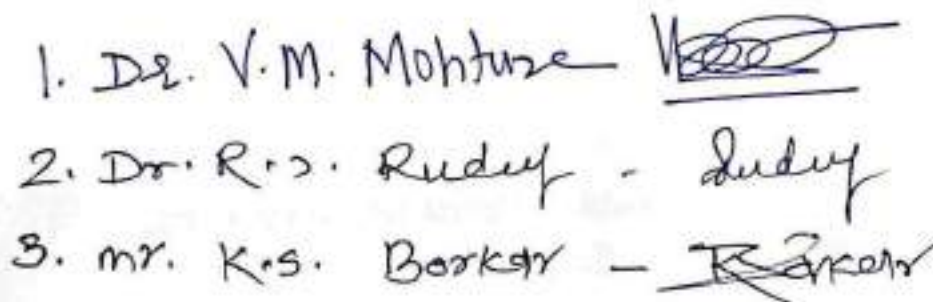 1. Dr. V.M. Mohture
2. Dr. R.S. Rudey - Rudey
3. mr. K.S. Borkar - Borkar